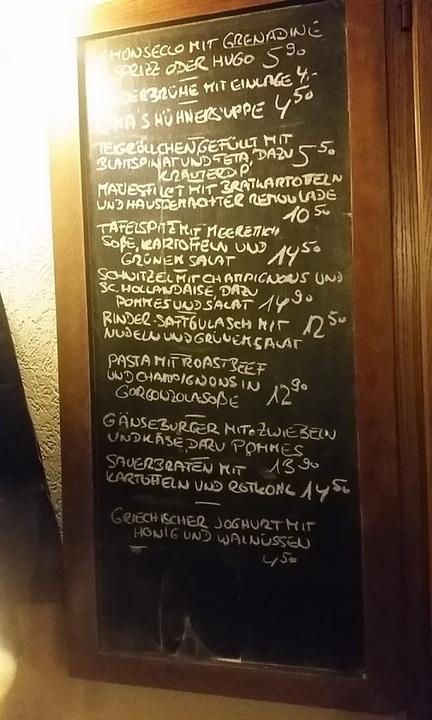 LEMONSECCO MIT GRENADINE
SPRIZZ ODER HUGO 5 90
RINDERBRÜHE MIT EINLAGE 4,-
OMA'S HÜHNERSUPPE 4 50
TEIGRÖLLCHEN GEFÜLLT MIT
BLATTSPINAT UND FETA, DAZU 5 50
KRÄUTERDIP
MATJESFILET MIT BRATKARTOFFELN
UND HAUSGEMACHTER REMOULADE
10 50
TAFELSPITZ MIT MEERETTICH
SOßE, KARTOFFELN UND
GRÜNEM SALAT 14 50
SCHNITZEL MIT CHAMPIGNONS UND
SC. HOLLANDAISE, DAZU
POMMES UND SALAT 14 90
RINDER-SAFTGULASCH MIT 12 50
NUDELN UND GRÜNEM SALAT
PASTA MIT ROASTBEEF
UND CHAMPIGNONS IN 12 90
GORGONZOLASOßE
GÄNSEBURGER MIT ZWIEBELN
UND KÄSE, DAZU POMMES
13 90
SAUERBRATEN MIT
KARTOFFELN UND ROTKOHL 14 50
GRIECHISCHER JOGHURT MIT
HONIG UND WALNÜSSEN
4 50